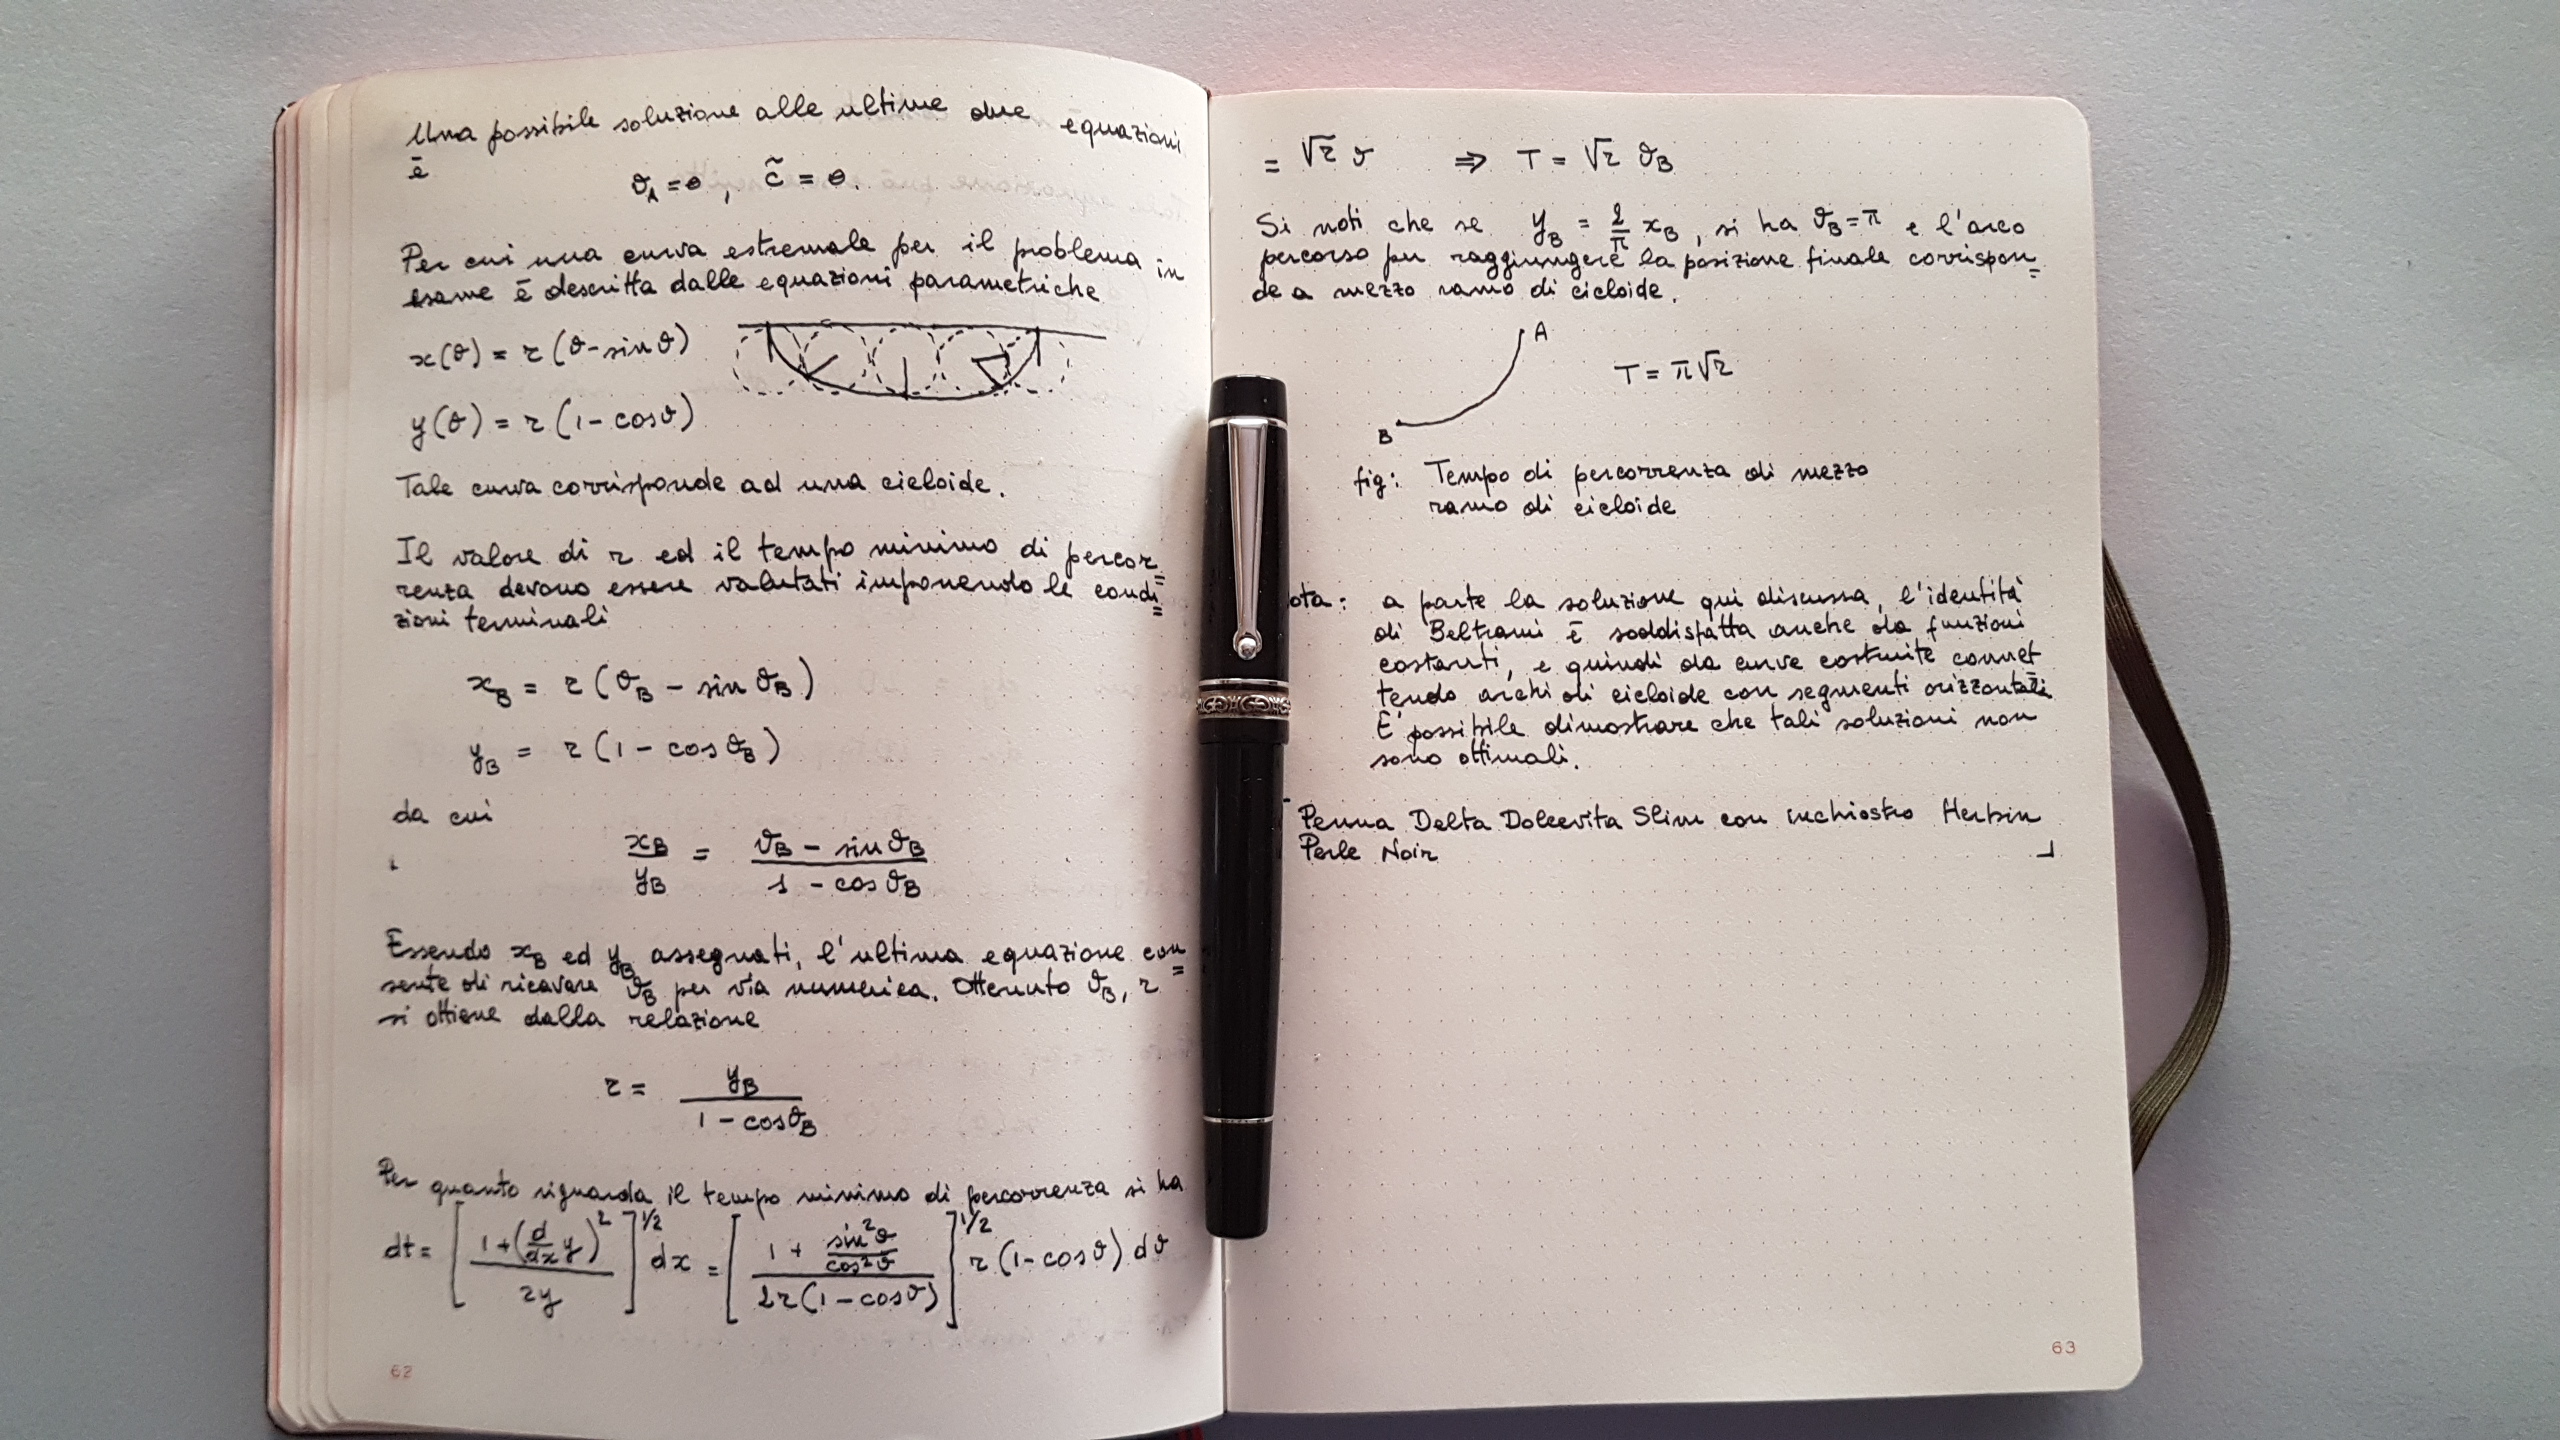 Una possibile soluzione alle ultime due equazioni
ē
ϑ_A = 0, c̃ = 0.
Per cui una curva estremale per il problema in
esame ē descritta dalle equazioni parametriche
x(ϑ) = r(ϑ - sin ϑ)
y(ϑ) = r(1 - cos ϑ)
Tale curva corrisponde ad una cicloide.
Il valore di r ed il tempo minimo di percor=
renza devono essere valutati imponendo le condi=
zioni terminali
x_B = r(ϑ_B - sin ϑ_B)
y_B = r(1 - cos ϑ_B)
da cui
x_B / y_B = (ϑ_B - sin ϑ_B) / (1 - cos ϑ_B)
Essendo x_B ed y_B assegnati, l'ultima equazione con=
sente di ricavare ϑ_B per via numerica. Ottenuto ϑ_B, r
si ottiene dalla relazione
r = y_B / (1 - cos ϑ_B)
Per quanto riguarda il tempo minimo di percorrenza si ha
dt = [(1 + (d/dx y)²) / 2y]^1/2 dx = [(1 + sin²ϑ/cos²ϑ) / 2r(1 - cos ϑ)]^1/2 r(1 - cos ϑ) dϑ
62
= √r ϑ ⇒ T = √r ϑ_B
Si noti che se y_B = 2/π x_B, si ha ϑ_B = π e l'arco
percorso per raggiungere la posizione finale corrispon=
de a mezzo ramo di cicloide.
A
T = π√r
B
fig: Tempo di percorrenza di mezzo
ramo di cicloide
ota: a parte la soluzione qui discussa, l'identità
di Beltrami ē soddisfatta anche da funzioni
costanti, e quindi da curve costruite connet
tendo archi di cicloide con segmenti orizzontali.
E' possibile dimostrare che tali soluzioni non
sono ottimali.
Penna Delta Dolcevita Slim con inchiostro Herbin
Perle Noir
63